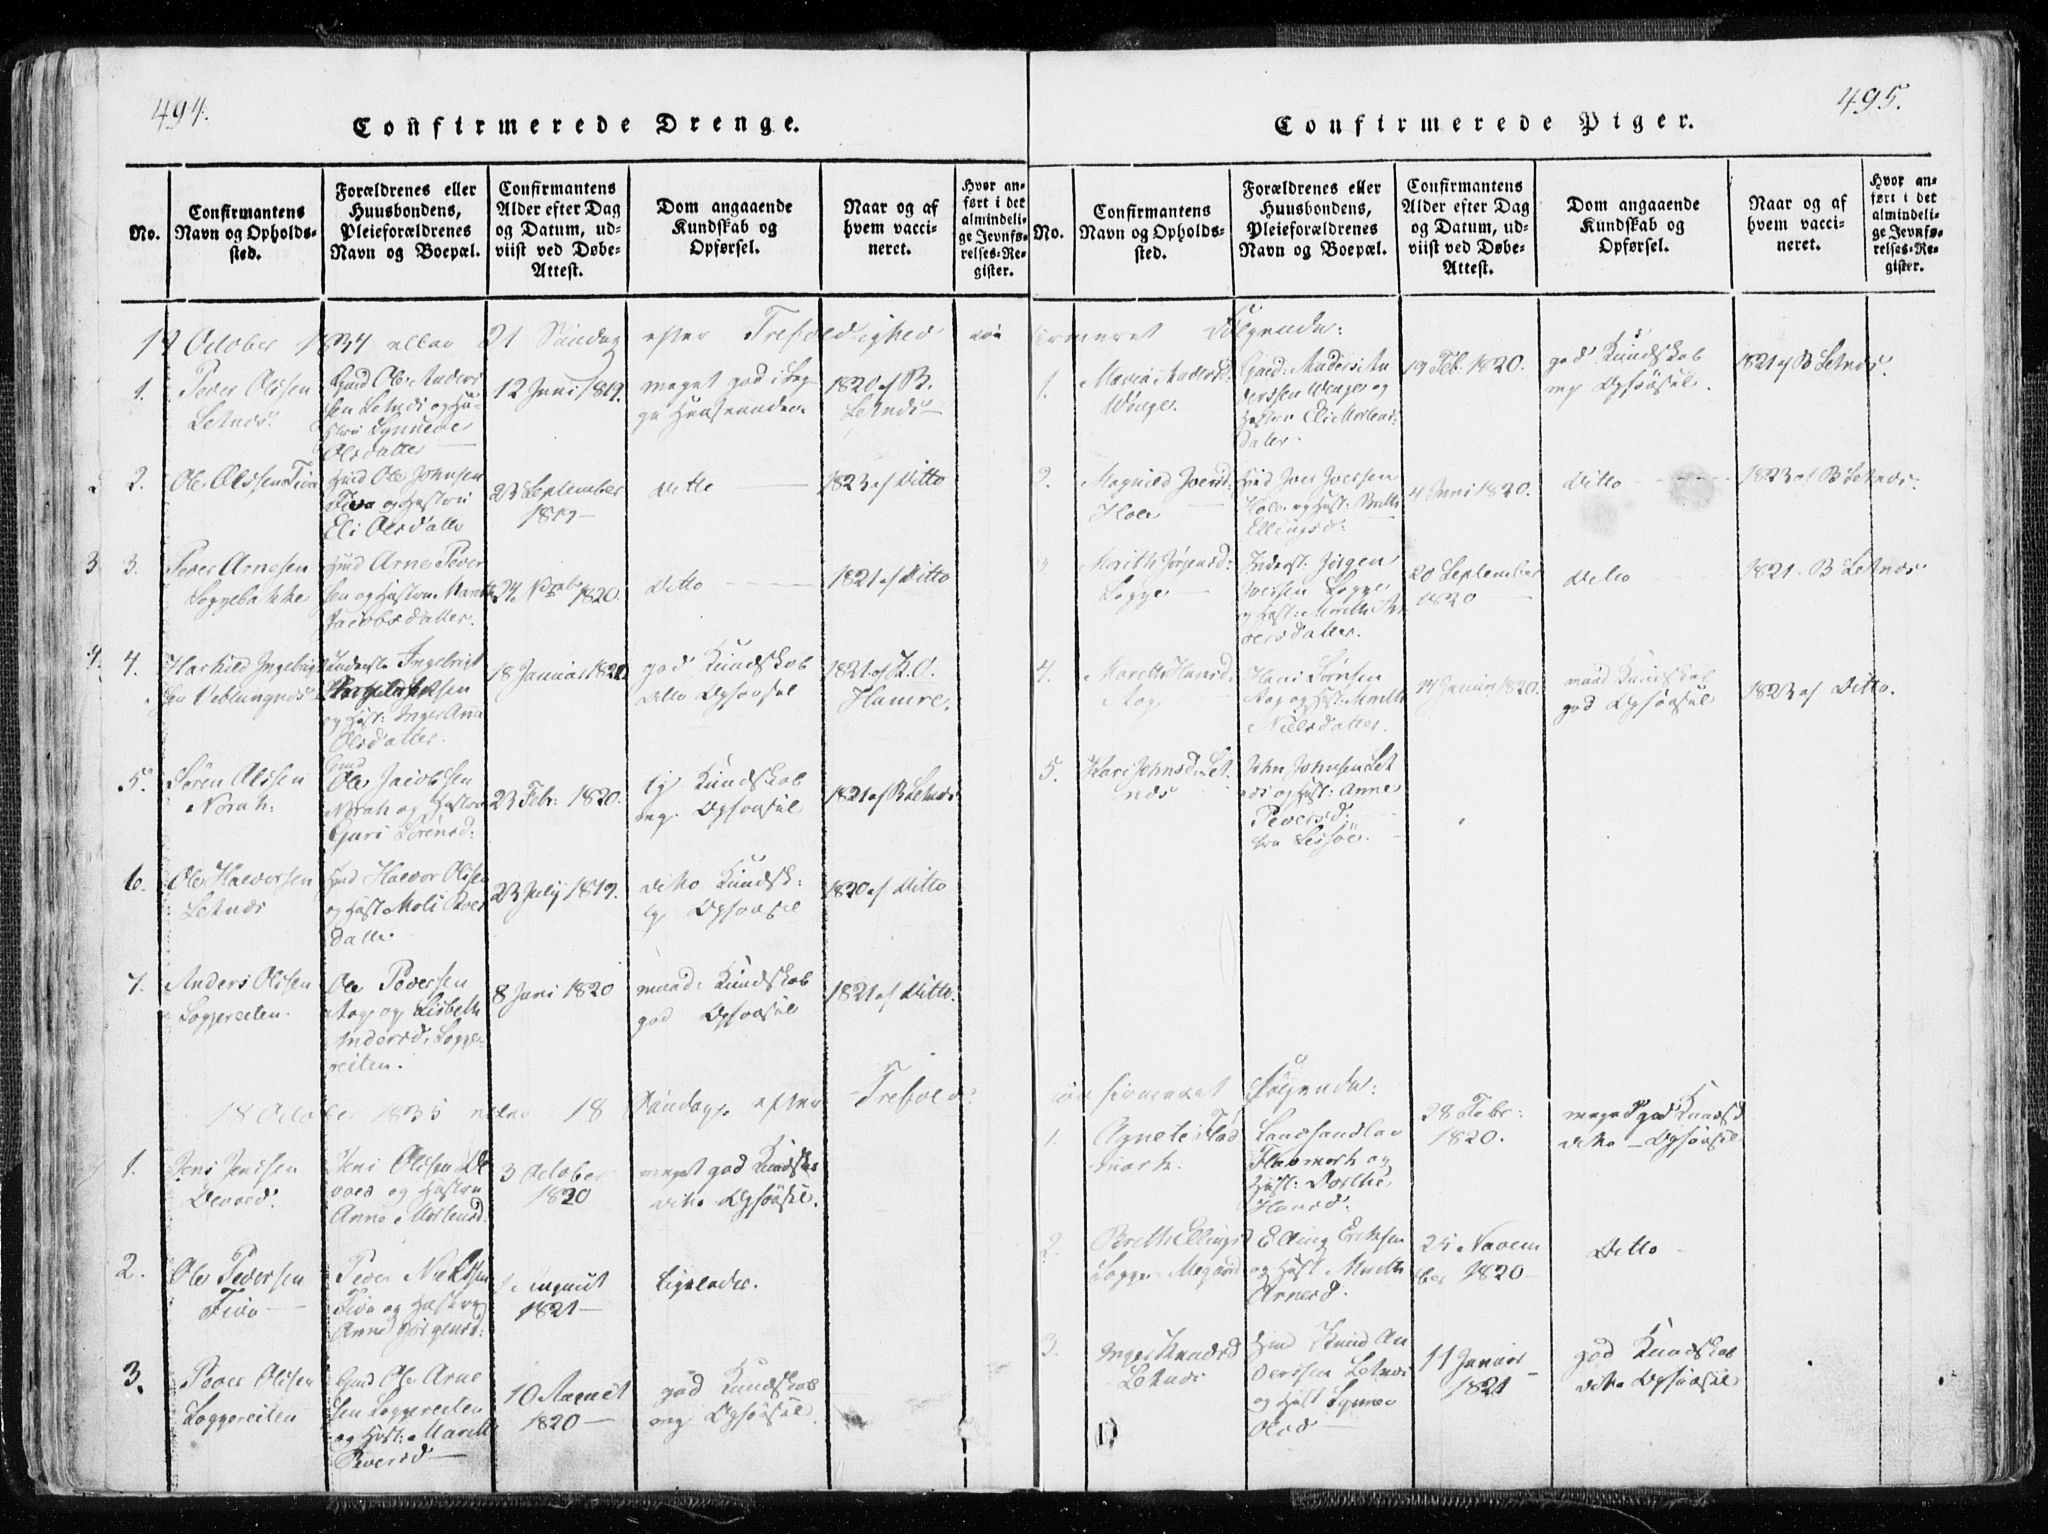 494.
Confirmerede Drenge.
No.
Confirmantens
Navn og Opholds-
sted.
Forældrenes eller
Huusbondens,
Pleieforældrenes
Navn og Boepæl.
Confirmantens
Alder efter Dag
og Datum, ud-
viist ved Døbe-
Attest.
Dom angaaende
Kundskab og
Opførsel.
Naar og af
hvem vacci-
neret.
Hvor an-
ført i det
almindeli-
ge Jevnfø-
relses-Re-
gister.
19 October 1834 eller 21 Søndag efter Trefoldighed
1.
Peder Olssen
Letnæs.
Gmd Ole Anders
sen Letnæs og Hu-
stru
Olsdatter
12 Juni 1819.
meget god i beg
ge Henseender
1820 af B.
Letnæs
2.
Ole Olssen Fiva
Gmd Ole Johnsen
Fiva og Hustru
Eli Olsdatter
23 September
1819
ditto
1823 af Ditto
3
3.
Peder Arnesen
Soggebakke
Hmd Arne Peder
sen og Hustru Marith
Jacobsdatter.
24 1820.
ditto
1821 af Ditto
4.
4.
Ingebrigt
sen Veblungnæs
Inderst Ingebrigt
og Hust: Inger Anna
Olsdatter.
18 Januar 1820
god Kundskab
ditto Opførsel
1821 af K.O.
Hamre.
5.
Søren Olssen
Norah.
Gmd
Ole Jacobsen
Norah og Hustru
Guri Sørensd:
23 Febr: 1820.
tg Kundskab
mg. Opførsel
1821 af B Letnæs
6.
Ole Halvorsen
Letnæs
Hmd Halvor Olsen
og Hust Moli Peders
datter
23 July 1819.
ditto Kundsk:
tg Opførsel
1820 af Ditto
7.
Anders Olssen
Soggereiten.
Ole Pedersen
Aag og Lisbeth
Andersd: Sogge-
reiten.
8 Juni 1820
maad: Kundskab
god Opførsel
1821 af Ditto.
18 October 1835 eller 18 Søndag efter Trefold:
1.
Jens Jenssen
Devold.
Jens Olssen De
vold og Hustru
Anne Mortensd.
3 October
1820
meget god Kundskab
ditto Opførsel.
2.
Ole Pedersen
Fiva
Peder Nielssen
Fiva og Hustru
Anne Jørgensd:
August
1821
Ligeledes.
3.
Peder Olssen
Soggereiten
Gmd Ole Arne
sen Soggereiten
og Hust: Marith
Pedersd
10 August
1820
god Kundskab
mg Opførsel.
495.
Confirmerede Piger.
No.
Confirmantens
Navn og Opholds-
sted.
Forældrenes eller
Huusbondens,
Pleieforældrenes
Navn og Boepæl.
Confirmantens
Alder efter Dag
og Datum, ud-
viist ved Døbe-
Attest.
Dom angaaende
Kundskab og
Opførsel.
Naar og af
hvem vacci-
neret.
Hvor an-
ført i det
almindeli-
ge Jevnfø-
relses-Re-
gister.
Følgende:
1.
Maria Andersd:
Wenge.
Gmd: Anders An
derssen Wenge og
Hustru Eli Mortens
datter.
19 Feb. 1820.
god Kundskab
mg Opførsel.
1821 af B Letnæs.
2.
Magnild Iversd:
Hole
Hmd Iver Iversen
Hole og Hust: Brith
Ellingsd:
4 Juni 1820.
ditto
1823 af B Letnæs.
3
Marith Jørgensd:
Sogge
Inderst: Jørgen
Iverssen Sogge
og Hust: Marith
datter.
20 September
1820
ditto
1821. B Letnæs
4.
Marith Hansd:
Aag
Hans Sørsen
Aag og Hust: Marith
Nielsdatter.
14 Januar 1820.
maad Kundskab
god Opførsel
1823 af Ditto.
5.
Kari Johnsd: Let
næs
John Johnsen Let
næs og Hust: Anne
Pedersd.
fra Lesjøe.
Følgende:
1.
Agnete Flad
mark.
Landhandler
Fladmark og
Hust: Dorthe
Hansd:
28 Febr:
1820.
meget god Kundsk
ditto Opførsel
2.
Brith Ellingsd
Sogge Megaard
Elling Eriksen
og Hust Marith
Arnesd.
25 Novem
ber 1820
Ditto
3.
Inger Knudsd
Letnæs
Hmd Knud An
derssen Letnæs
og Hust Synnev
Olsd
11 Januar
1821
god Kundskab
ditto Opførsel